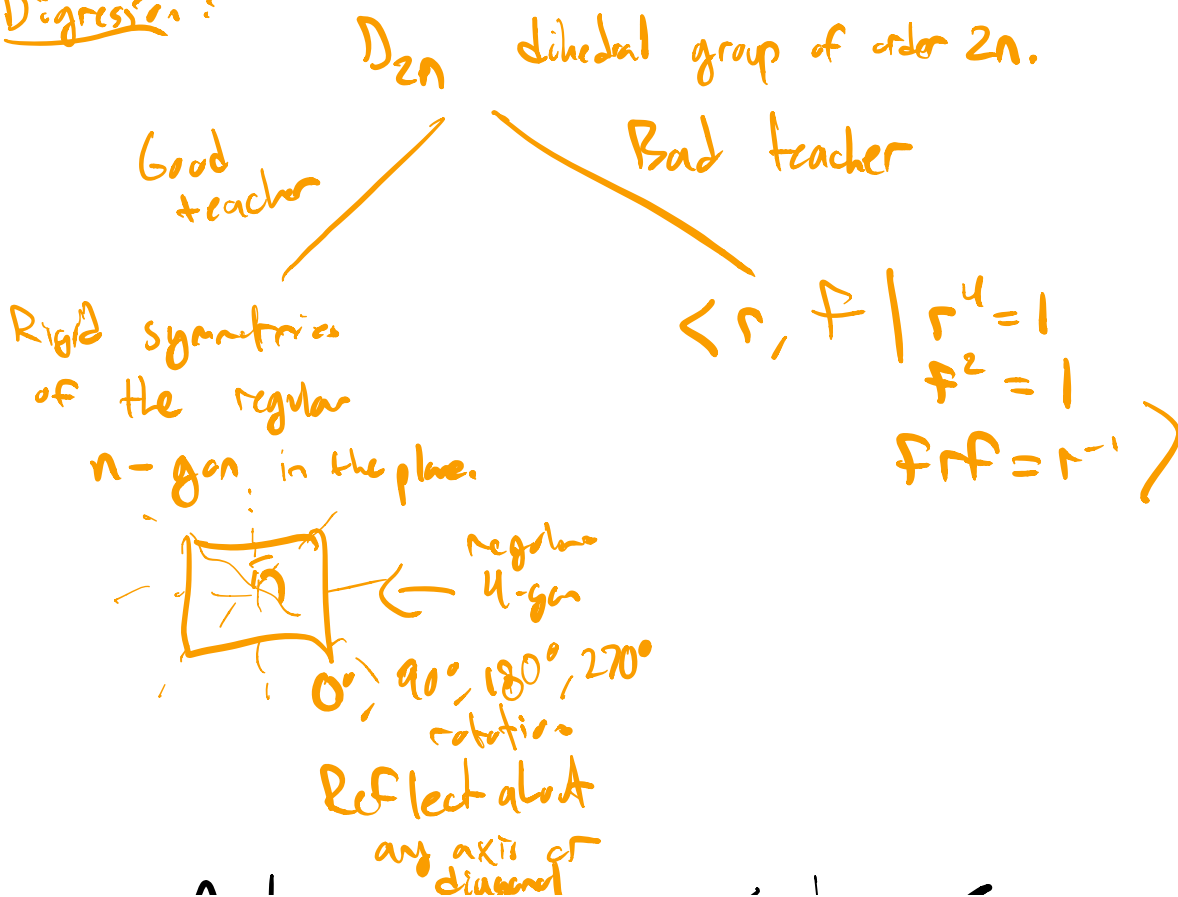 Digression:
D2n dihedral group of order 2n.
Good teacher
Bad teacher
Rigid symmetries
of the regular
n-gon in the plane.
regular
4-gon
0°, 90°, 180°, 270°
rotation
Reflect about
any axis or
diagonal
< r, f | r^4 = 1
f^2 = 1
frf = r^-1 >